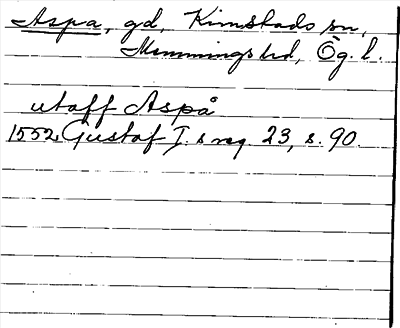 Aspa, gd, Kimstads sn,
Memmings hd, Ög. l.
utaff Aspå
1552 Gustaf I. s reg. 23, s. 90.